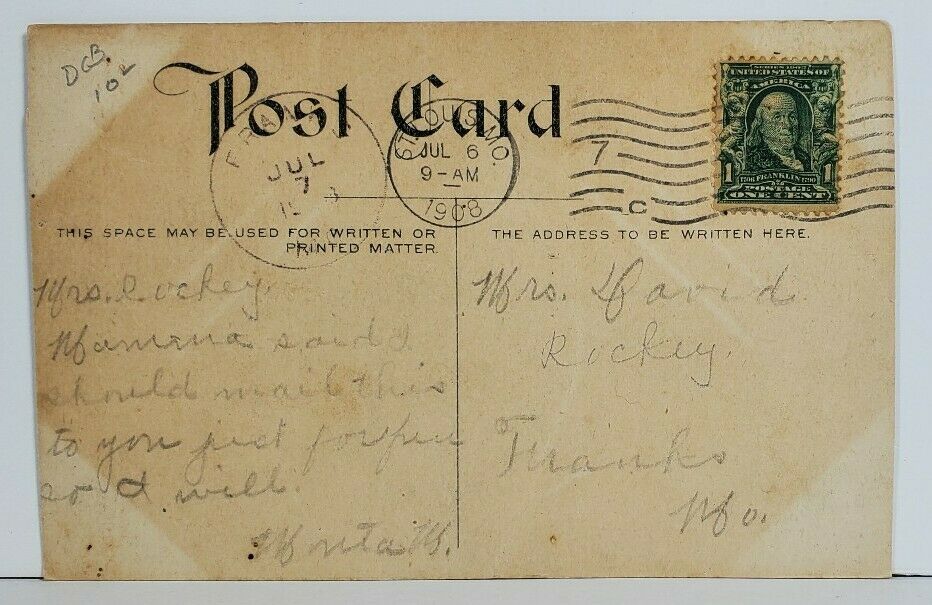 DGB
102
Post Card
SERIES 1902
UNITED STATES OF
AMERICA
1706 FRANKLIN 1790
1 POSTAGE 1
ONE CENT
FRAN
JUL
7
ST. LOUIS, MO.
JUL 6
9-AM
1908
7
C
THIS SPACE MAY BE USED FOR WRITTEN OR
PRINTED MATTER.
THE ADDRESS TO BE WRITTEN HERE.
Mrs. Rockey.
Mamma said I
should mail this
to you just for fun
so I will.
M.
Mrs. David
Rockey.
Franks
Mo.